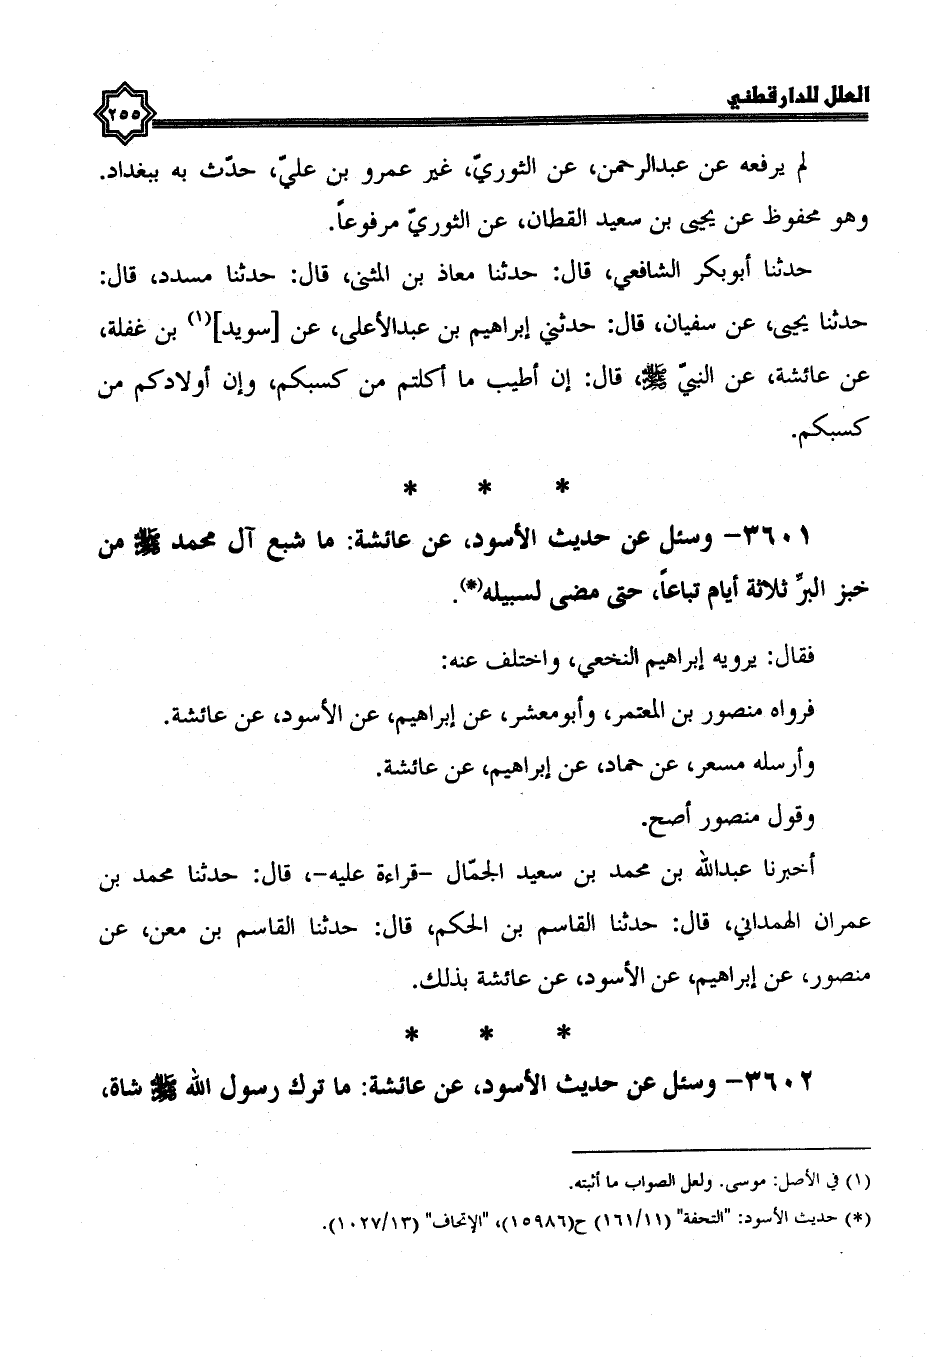 العلل للدارقطني
٢٥٥
لم يرفعه عن عبدالرحمن، عن الثوريّ، غير عمرو بن عليّ، حدّث به ببغداد.
وهو محفوظ عن يحيى بن سعيد القطان، عن الثوريّ مرفوعاً.
حدثنا أبوبكر الشافعي، قال: حدثنا معاذ بن المثنى، قال: حدثنا مسدد، قال:
حدثنا يحيى، عن سفيان، قال: حدثني إبراهيم بن عبدالأعلى، عن [سويد](١) بن غفلة،
عن عائشة، عن النبيّ ﷺ، قال: إن أطيب ما أكلتم من كسبكم، وإن أولادكم من
كسبكم.
* * *
٣٦٠١- وسئل عن حديث الأسود، عن عائشة: ما شبع آل محمد ﷺ من
خبز البرِّ ثلاثة أيام تباعاً، حتى مضى لسبيله(*).
فقال: يرويه إبراهيم النخعي، واختلف عنه:
فرواه منصور بن المعتمر، وأبومعشر، عن إبراهيم، عن الأسود، عن عائشة.
وأرسله مسعر، عن حماد، عن إبراهيم، عن عائشة.
وقول منصور أصح.
أخبرنا عبدالله بن محمد بن سعيد الجمّال -قراءة عليه-، قال: حدثنا محمد بن
عمران الهمداني، قال: حدثنا القاسم بن الحكم، قال: حدثنا القاسم بن معن، عن
منصور، عن إبراهيم، عن الأسود، عن عائشة بذلك.
* * *
٣٦٠٢- وسئل عن حديث الأسود، عن عائشة: ما ترك رسول الله ﷺ شاة،
(١) في الأصل: موسى. ولعل الصواب ما أثبته.
(*) حديث الأسود: "التحفة" (١٦١/١١) ح(١٥٩٨٦)، "الإتحاف" (١٠٢٧/١٣).